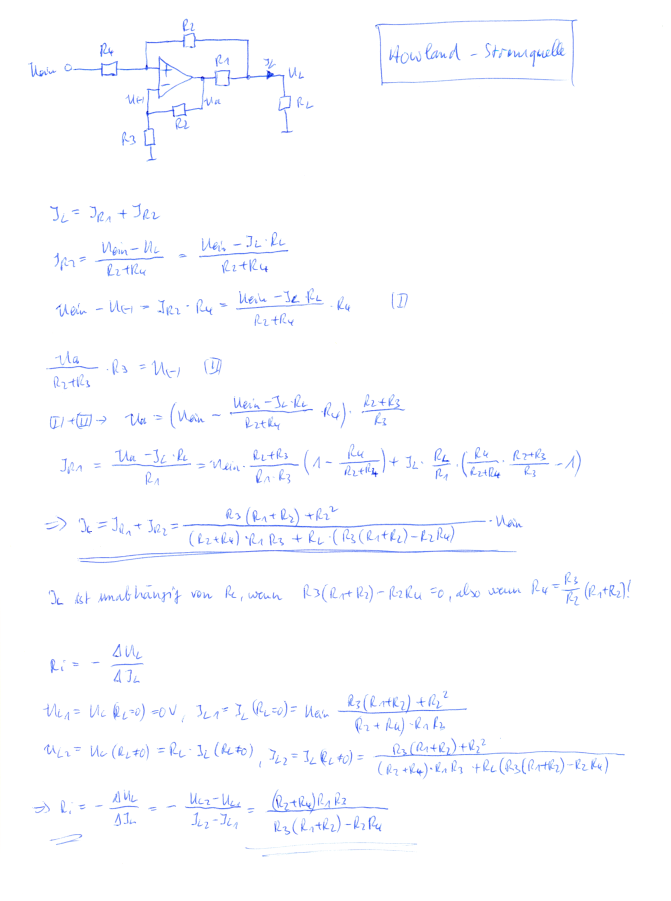 Howland - Stromquelle
R2
R4
R1
IL
Uein
UL
+
-
U(-)
Ua
R2
RL
R3
IL = IR1 + IR2
IR2 = (Uein - UL)/(R2+R4) = (Uein - IL · RL)/(R2+R4)
Uein - U(-) = IR2 · R4 = (Uein - IL RL)/(R2+R4) · R4 (I)
Ua/(R2+R3) · R3 = U(-) (II)
(I)+(II) → Ua = (Uein - (Uein - IL·RL)/(R2+R4) · R4) · (R2+R3)/R3
IR1 = (Ua - IL·RL)/R1 = Uein · (R2+R3)/(R1·R3) (1 - R4/(R2+R4)) + IL · RL/R1 · (R4/(R2+R4) · (R2+R3)/R3 - 1)
=> IL = IR1 + IR2 = (R3(R1+R2) + R2²)/((R2+R4)·R1R3 + RL·(R3(R1+R2) - R2R4)) · Uein
IL ist unabhängig von RL, wenn R3(R1+R2) - R2R4 = 0, also wenn R4 = R3/R2 (R1+R2)!
Ri = - ΔUL/ΔIL
UL1 = UL(RL=0) = 0V, IL1 = IL(RL=0) = Uein (R3(R1+R2) + R2²)/((R2+R4)·R1R3)
UL2 = UL(RL≠0) = RL · IL(RL≠0), IL2 = IL(RL≠0) = (R3(R1+R2) + R2²)/((R2+R4)·R1R3 + RL(R3(R1+R2) - R2R4))
=> Ri = - ΔUL/ΔIL = - (UL2 - UL1)/(IL2 - IL1) = ((R2+R4)R1R3)/(R3(R1+R2) - R2R4)